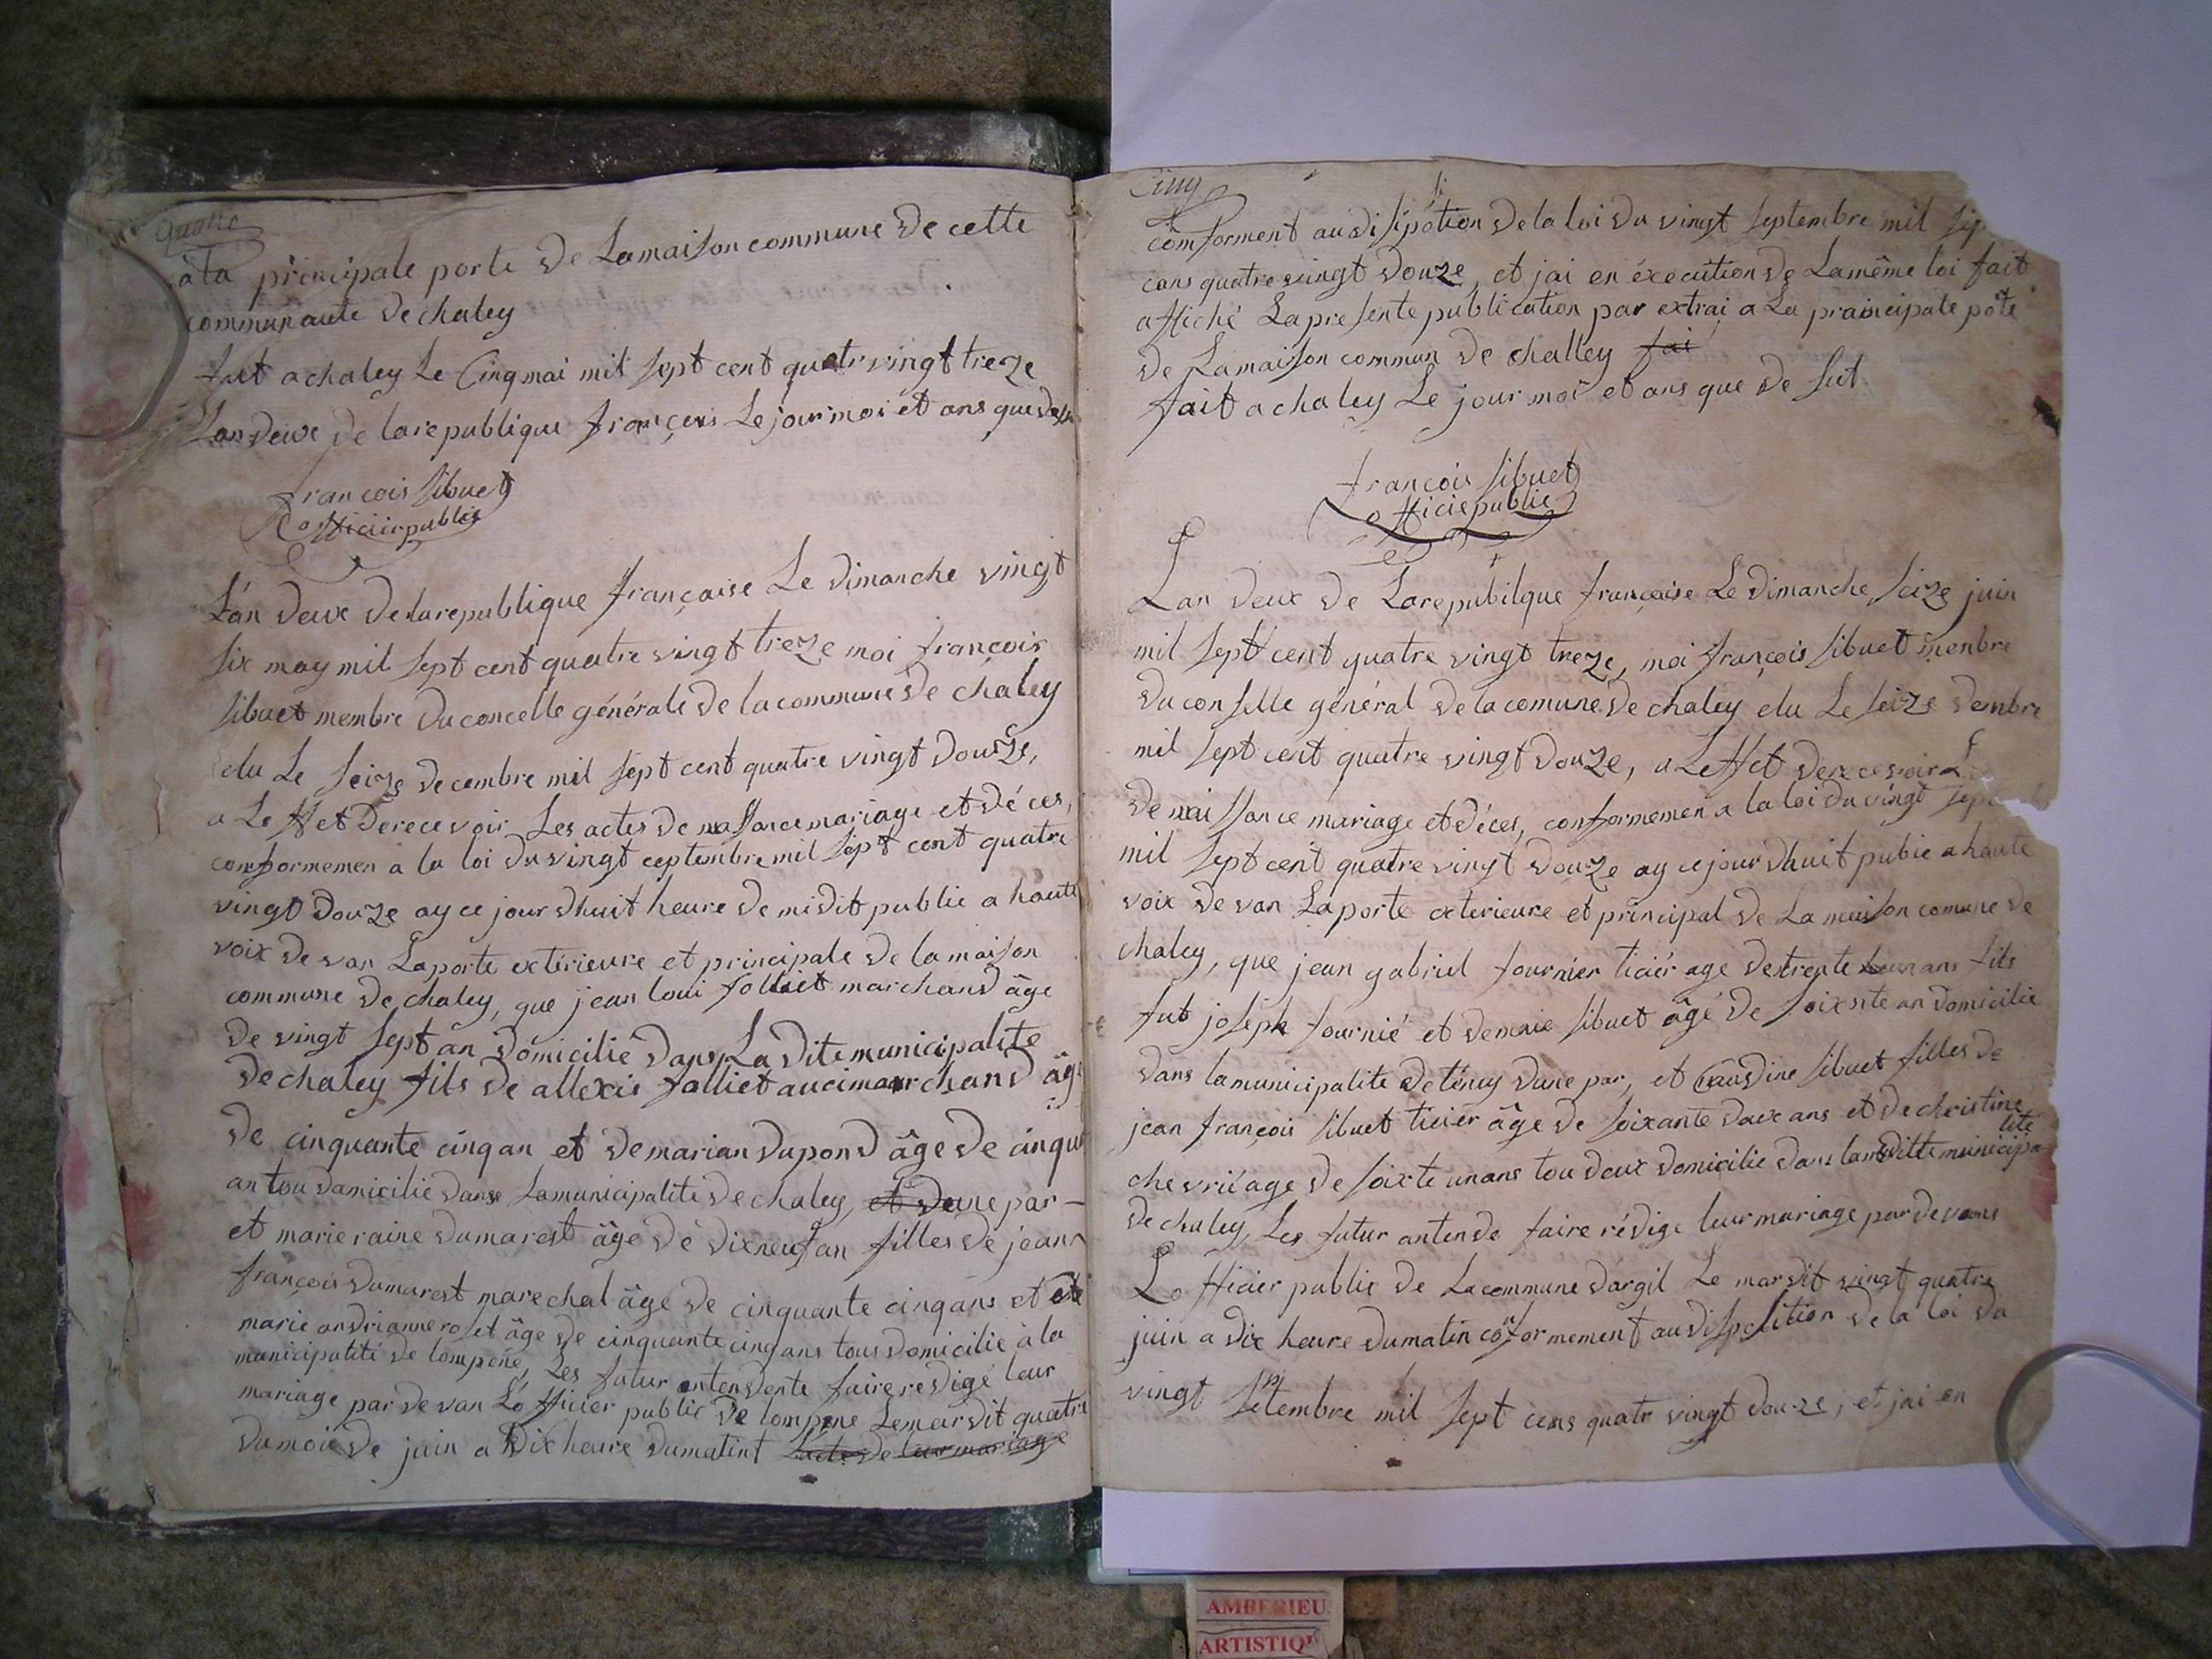 quatre
a la principale porte de Lamaison commune de cette
communaute de chaley
fait a chaley Le Cinq mai mil sept cent quatrvingt treze
Lan deux de larepublique françois Le jour moi et ans que dessu
francois sibuet
officier public
L'an deux de larepublique française Le dimanche vingt
six may mil sept cent quatre vingt treze moi françois
sibuet membre du concelle générale de la commune de chaley
elu Le seize decembre mil sept cent quatre vingt douze,
a Leffet derecevoir Les actes de naissance mariage et dé ces,
conformemen a la loi du vingt ceptembre mil sept cent quatre
vingt douze ay ce jour dhuit heure de midit public a haute
voix de van Laporte extérieure et principale de la maison
commune de chaley, que jean loui folliet marchand âge
de vingt sept an domicilié dans La dite municipalite
de chaley fils de allexis falliet auci marchand âge
de cinquante cinq an et de marian dupond âge de cinqu
an tou domicilié dans Lamunicipalite de chaley, et dune par –
et marie raine dumarest âge dé dixneuf an filles de jean
françois dumarest marechal âge de cinquante cinq ans et de
marie andrianne roset âge de cinquante cinq ans tous domicilié à la
municipalité de lompene, Les futur entendente faire redigé leur
mariage par de van Lófficier public de lompene Lemardit quatre
du moi de juin a dix heure dumatint Lactes de leur mariage
Cinq
conforment au disipotion de la loi du vingt septembre mil sep
cans quatre vingt douze, et jai en éxecution de Lamême loi fait
affiché La presente publication par extrai a La prainicipale pôte
de Lamaison commun de challey fai
fait a chaley Le jour moi et ans que de sut
françois sibuet
officie public
Lan deux de Larepubilque francaise Le dimanche seize juin
mil sept cent quatre vingt treze, moi françois sibuet menbre
du conselle général de la comune de chaley elu Le seize dembre
mil sept cent quatre vingt douze, a Leffet derecevoir L
de naissance mariage et déces, conformemen a la loi du vingt sep
mil sept cent quatre vingt douze ay ce jour dhuit pubie a haute
voix de van Laporte exterieure et principal de La maison comune de
chaley, que jean gabriel fournier ticiér age de trente ans fils
fut joseph fournié et de marie sibuet âgé de soixnte an domicilie
dans lamunicipalite de téncy dune par, et Claudine sibuet filles de
jean françois sibuet ticier âge de soixante deux ans et de christine
chevrié age de soixte unans tou deux domicilie dans la ditte municipalité
de chaley, Les futur antende faire rédige leur mariage par de vans
Lofficier public de La commune dargil Le mardit vingt quatre
juin a dix heure dumatin conformement au disposition de la loi du
vingt septembre mil sept cens quatr vingt douze, et jai en
AMBERIEU
ARTISTIQ